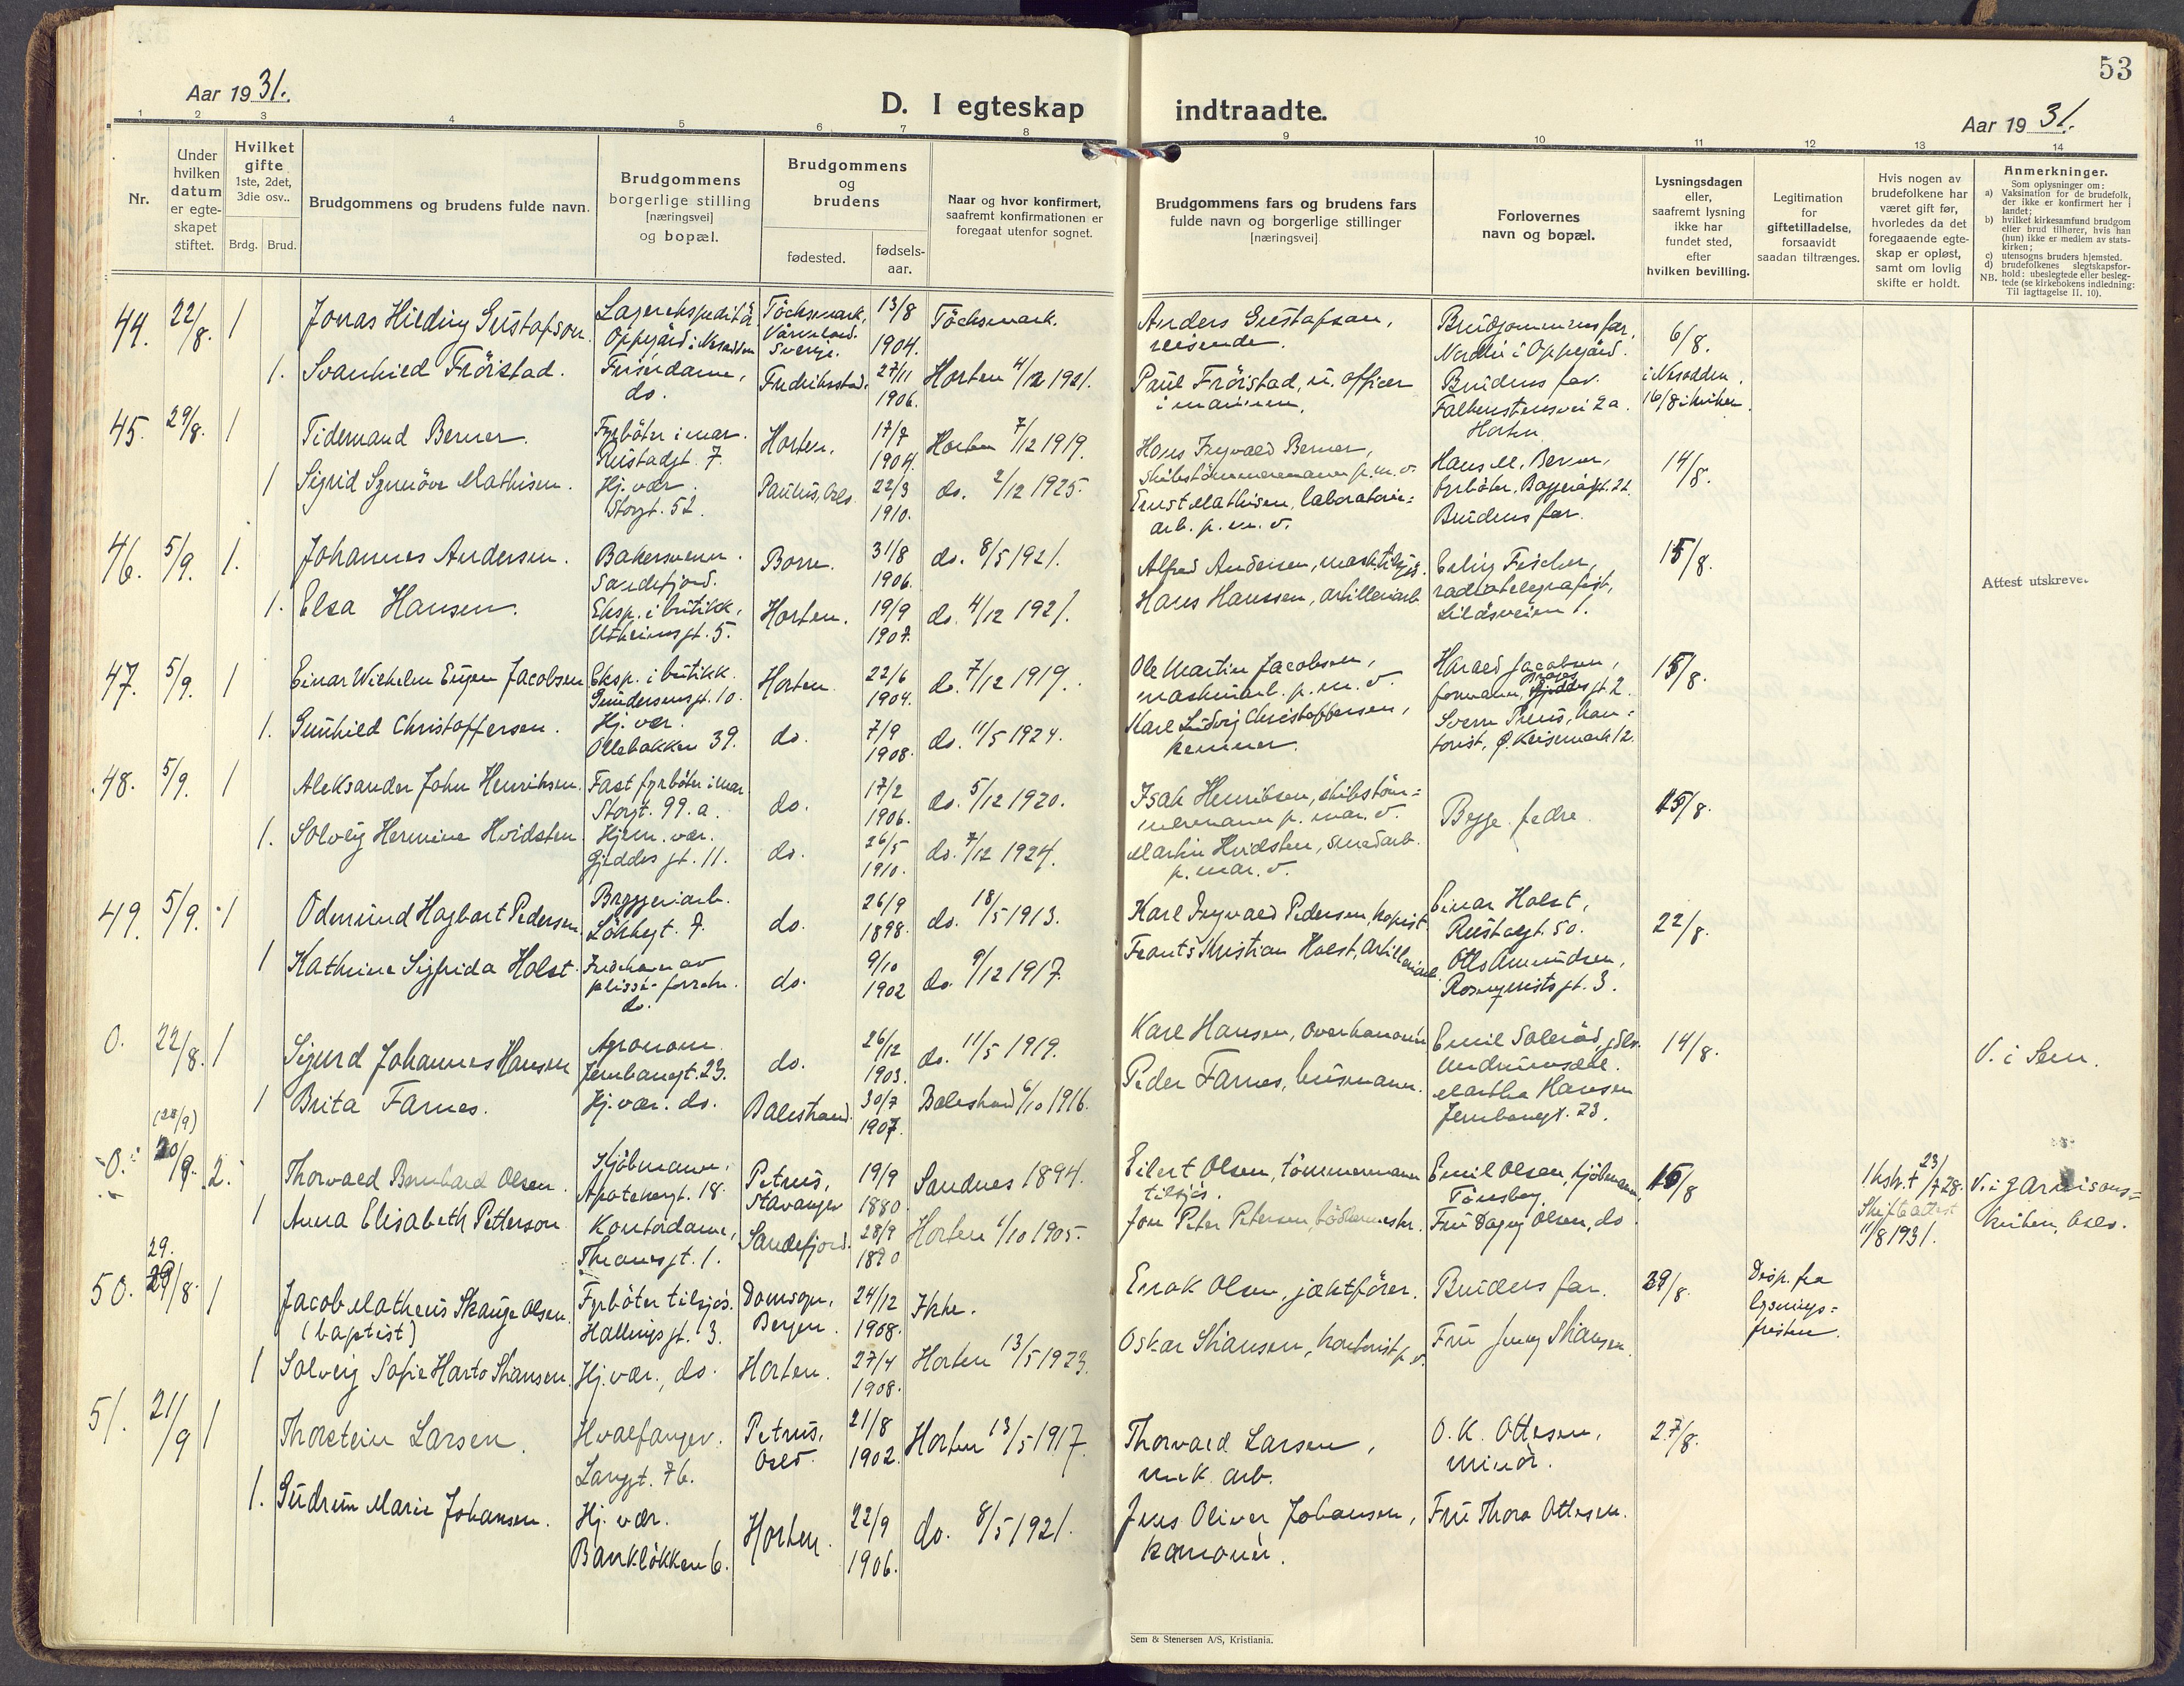 53
Aar 1931.
D. I egteskap indtraadte.
Aar 1931.
1 2 3 4 5 6 7 8 9 10 11 12 13 14
Nr.
Under hvilken datum er egteskapet stiftet.
Hvilket gifte 1ste, 2det, 3die osv..
Brdg. Brud.
Brudgommens og brudens fulde navn.
Brudgommens borgerlige stilling [næringsvei] og bopæl.
Brudgommens og brudens
fødested.
fødselsaar.
Naar og hvor konfirmert, saafremt konfirmationen er foregaat utenfor sognet.
Brudgommens fars og brudens fars fulde navn og borgerlige stillinger [næringsvei]
Forlovernes navn og bopæl.
Lysningsdagen eller, saafremt lysning ikke har fundet sted, efter hvilken bevilling.
Legitimation for giftetilladelse, forsaavidt saadan tiltrænges.
Hvis nogen av brudefolkene har været gift før, hvorledes da det foregaaende egteskap er opløst, samt om lovlig skifte er holdt.
Anmerkninger.
Som oplysninger om:
a) Vaksination for de brudefolk, der ikke er konfirmert her i landet;
b) hvilket kirkesamfund brudgom eller brud tilhører, hvis han (hun) ikke er medlem av statskirken;
c) utensogns bruders hjemsted.
d) brudefolkenes slegtskapsforhold: ubeslegtede eller beslegtede (se kirkebokens indledning: Til Iagttagelse II. 10).
NB.
44. 22/8. 1 Jonas Hilding Gustafson. Lagerekspeditör Oppegård i Nesodden Töcksmark, Värmland. Sverige. 13/8 1904. Töcksmark. Anders Gustafsson, reisende. Brudgommens far, i Oppegård. 6/8.
1. Svanhild Fröistad. Frisördame, do. Fredrikstad. 27/11 1906. Horten 4/12 1921. Paul Fröistad, u. officer i marinen. Brudens far. Falkenstensvei 2a. Horten i Nesodden. 16/8 i kirken.
45. 29/8. 1 Tidemand Berner. Fyrböter i mar. Rustadgt. 7. Horten. 17/7 1904. Horten 7/12 1919. Hans Ingvald Berner, skibstömmermann p.m.v. Hans M. Berner, fyrböter, Baggeråsgt. 22. 14/8.
1 Sigrid Synnöve Mathisen. Hj. vær. Storgt. 52. Paulus, Oslo 22/3 1910. do. 2/12 1925. Ernst Mathisen, laboratoriearb. p. m. v. Brudens far.
46. 5/9. 1. Johannes Andersen. Bakersvenn. Sandefjord. Borre. 31/8 1906. do. 8/5 1921. Alfred Andersen, mask. tilsjös. Erling Fischer, radiotelegrafist, Lilásveien 1. 15/8.
Attest utskrevet
1. Elsa Hansen. Eksp. i butikk, Utheimsgt. 5. Horten. 19/9 1907. do. 4/12 1921. Hans Hanssen, artilleriarb.
47. 5/9. 1 Einar Wilhelm Eugen Jacobsen Eksp. i butikk. Gundersensgt. 10. Horten. 22/6 1904. do. 7/12 1919. Ole Martin Jacobsen, maskinarb. p. m. v. Harald Jacobsen, formann, gt. 2. 15/8.
1. Gunhild Christoffersen. Hj. vær. Ollebakken 39. do. 7/9 1908. do. 11/5 1924. Karl Ludvig Christoffersen, kemner. Sverre Preus, kontorist, Ø. Keisemark 12.
48. 5/9. 1 Aleksander John Henriksen. Fast fyrböter i mar Storgt. 99. a. do. 17/2 1906. do. 5/12 1920. Isak Henriksen, skibstömmermann p. mar. v. Begge fedre. 15/8.
1. Solveig Hermine Hvidsten Hjem. vær. Gjeddes gt. 11. do. 26/5 1910. do. 7/12 1924. Martin Hvidsten, smedarb. p. mar. v.
49. 5/9. 1 Odmund Hagbart Pedersen. Bryggeriarb. Lökkegt. 7. do. 26/9 1898. do. 18/5 1913. Karl Ingvald Pedersen, kopist. Einar Holst, Rustadgt. 50. 22/8.
1 Kathrine Sigfrida Holst. Indehaver av plissé-forretn. do. do. 9/10 1902 do. 9/12 1917. Frants Kristian Holst, Artilleriarb. Otto Amundsen, Rosenqvistsgt. 3.
0. 22/8. 1 Sigurd Johannes Hansen Agronom. Jernbanegt. 23. do. 26/12 1903. do. 11/5 1919. Karl Hansen, Overkanonér Emil Solerød, Undrumsdal. 14/8. V. i Sem.
1 Brita Farnes. Hj. vær. do. Balestrand. 30/7 1907. Balestrand 6/10 1916. Peder Farnes, husmann. Martha Hansen Jernbanegt. 23.
0. (20/9) 20/9. 2. Thorvald Bernhard Olsen. Kjöbmann, Apotekergt. 18. Petrus, Stavanger 19/9 1880. Sandnes 1894. Eilert Olsen, tömmermann tilsjös. Emil Olsen, kjöbmann, Tönsberg. 15/8 1 hstr. † 23/7 28. Skifteattest 11/8 1931. V. i Garnisonskirken, Oslo.
1 Anna Elisabeth Petterson Kontordame, Thranesgt. 1. Sandefjord. 28/9 1890 Horten 1/10 1905. Jon Peter Petersen, bödkermestr. Fru Dagny Olsen, do.
50. 29. 29/8. 1 Jacob Matheus Skauge Olsen. (baptist) Fyrböter tilsjös. Hallingsgt. 3. Domsogn, Bergen. 24/12 1908. Ikke. Enok Olsen, jaktfører. Brudens far. 29/8. Disp. fra lysningsfristen.
1 Solveig Sofie Harto Skansen. Hj. vær., do. Horten. 27/4 1908. Horten 13/5 1923. Oskar Skansen, kontorist p. v. Fru Jenny Skansen.
51. 21/9 1 Thorstein Larsen. Hvalfanger. Langgt. 76. Petrus, Oslo. 21/8 1902. Horten 13/5 1917. Thorvald Larsen, mek. arb. O. K. Ottesen, minör. 27/8.
1. Gudrun Marie Johansen. Hj. vær. Banklökken 6. Horten. 22/9 1906. do. 8/5 1921. Jens Oliver Johansen, kanonér. Fru Thora Ottesen.
Sem & Stenersen A/S, Kristiania.